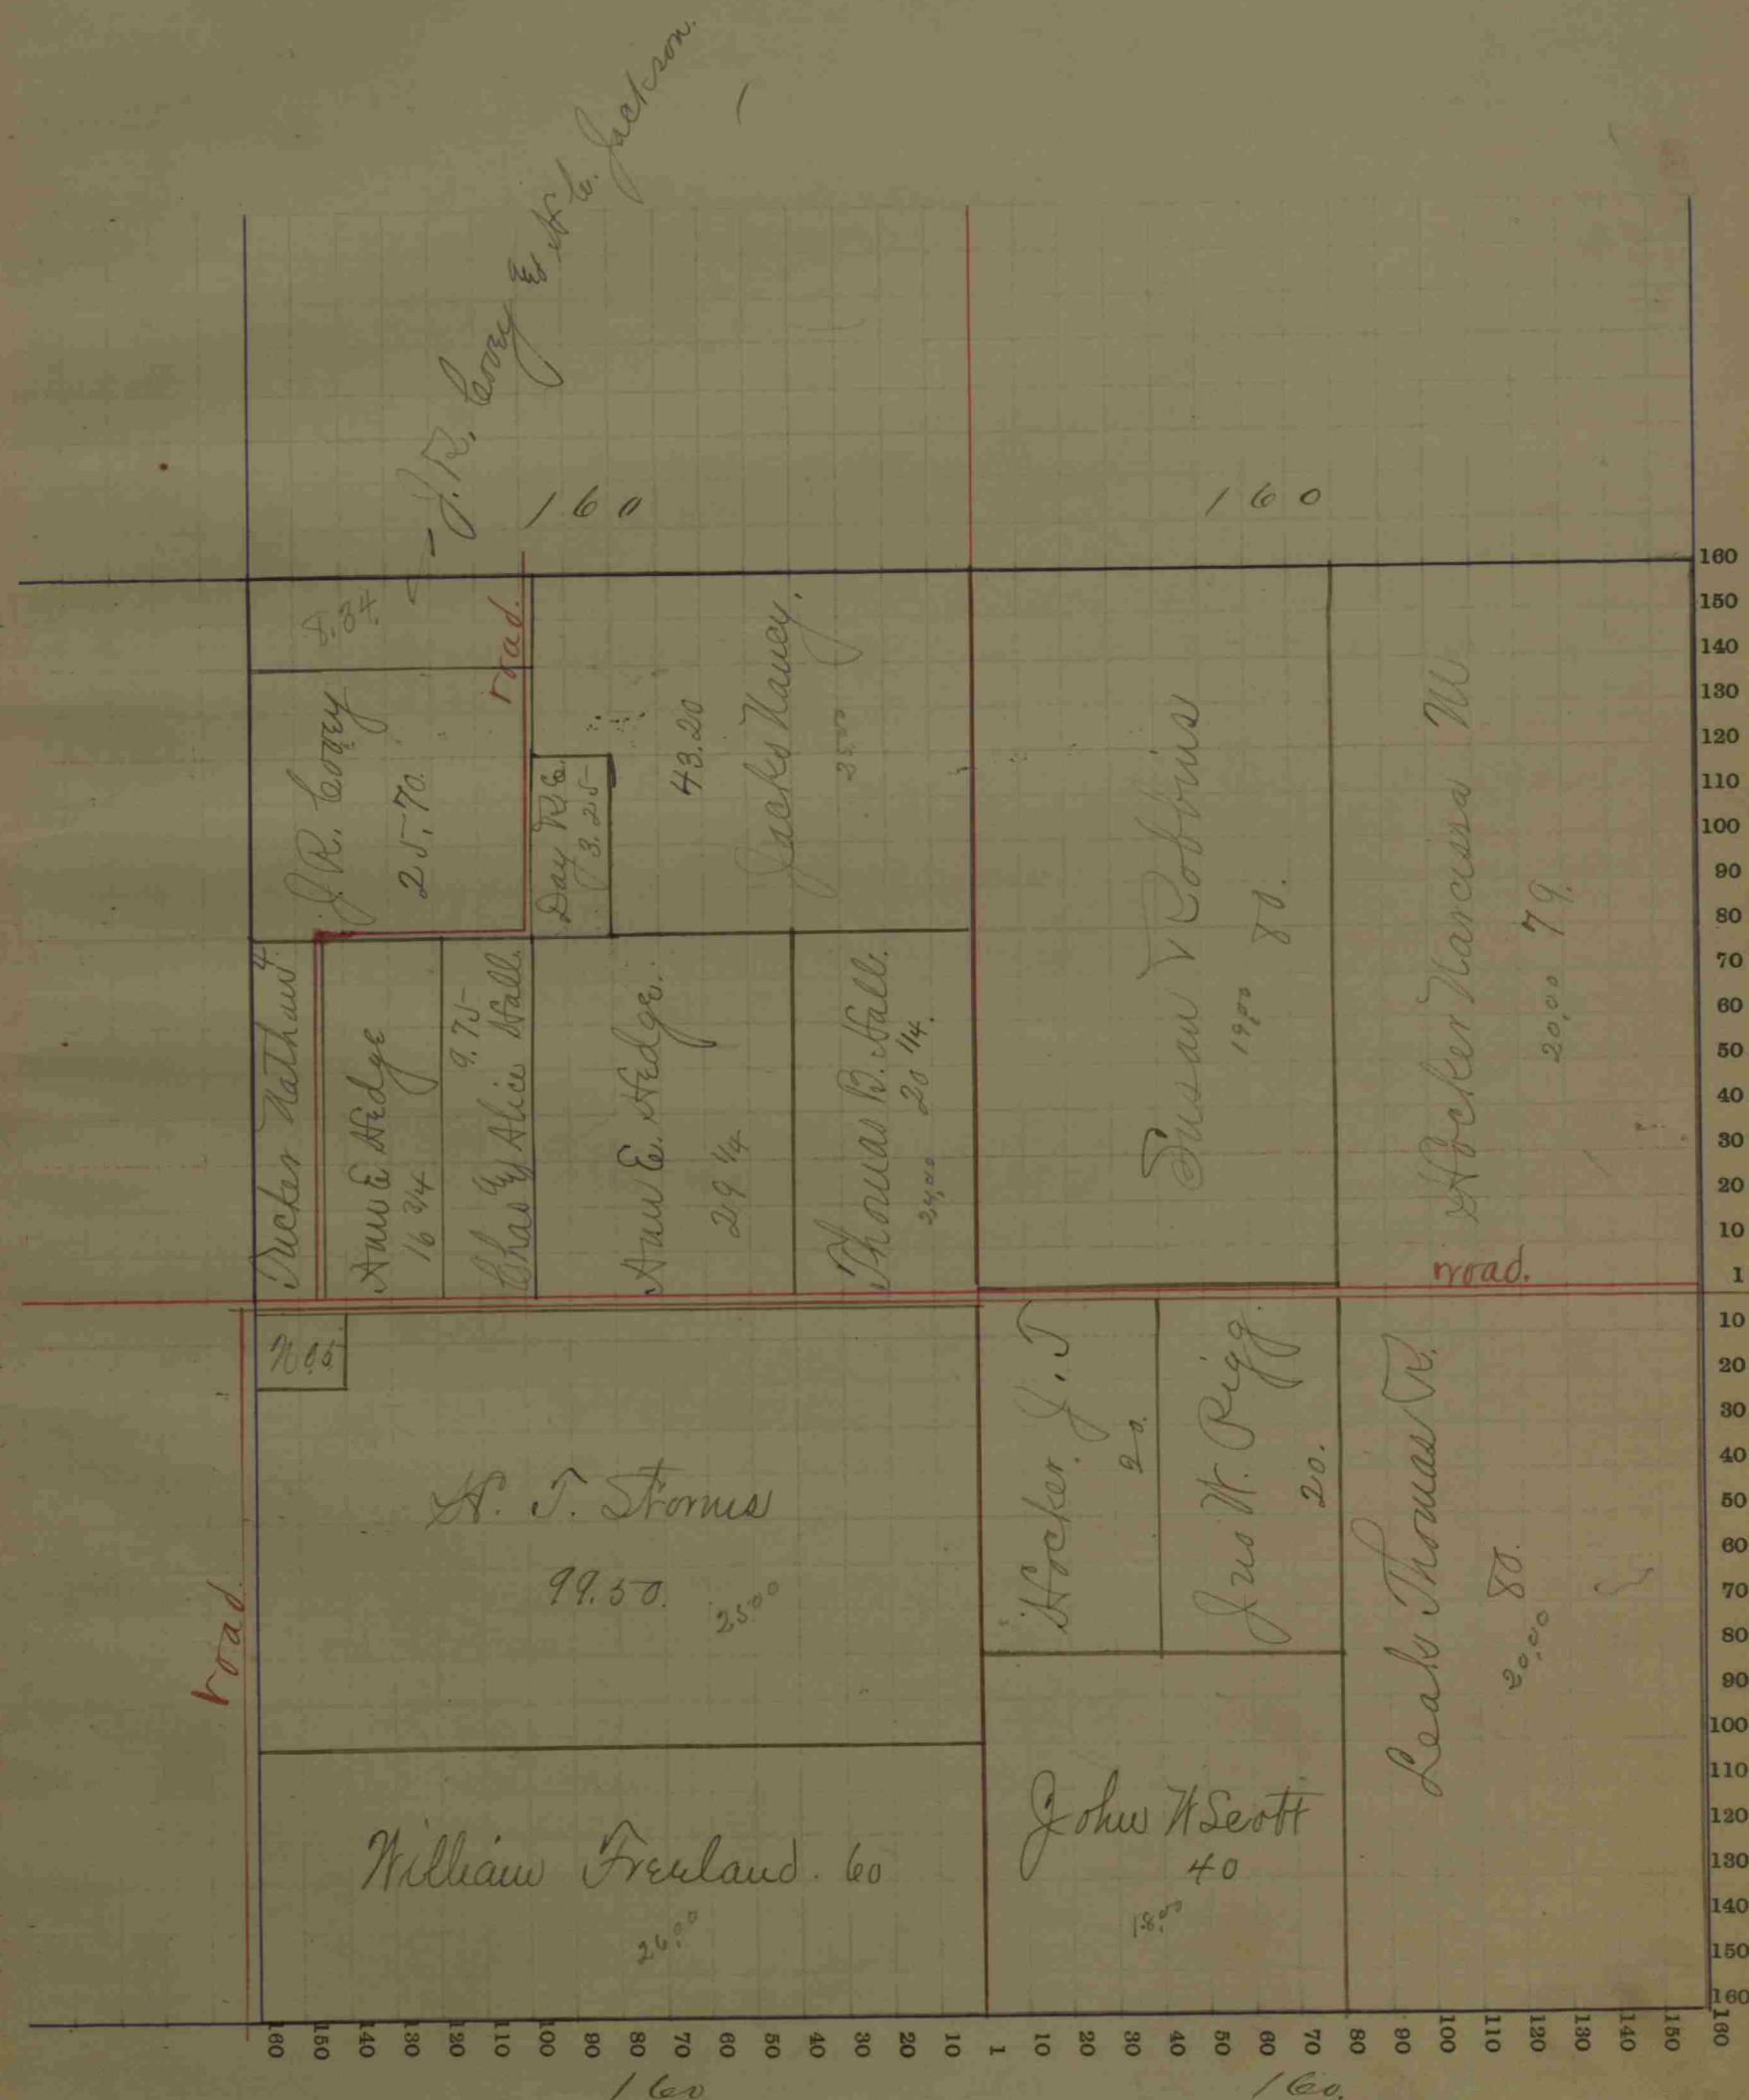 J. R. Corey & H. C. Jackson.
160
160
8.34
J. R. Corey
25.70.
road.
Day R.E.
3.25
43.20
Jacks Nancy.
25.00
Tucker Nathan 4
Ann E Hedge
16 3/4
9.75
Chas & Alice Hall.
Ann E. Hedge.
29 1/4
Thomas B. Hall.
20 1/4.
24.00
Susan V Robbins
19.00
80.
Hocker Narcissa M
20.00
79.
road.
road.
H. T. Storms
99.50.
25.00
William Freeland. 60
26.00
Hocker. J. T
20.
Jno W. Pigg.
20.
John W Scott
40
18.00
Leak Thomas R.
80.
20.00
160
150
140
130
120
110
100
90
80
70
60
50
40
30
20
10
1
10
20
30
40
50
60
70
80
90
100
110
120
130
140
150
160
160 150 140 130 120 110 100 90 80 70 60 50 40 30 20 10 1 10 20 30 40 50 60 70 80 90 100 110 120 130 140 150 160
160
160.